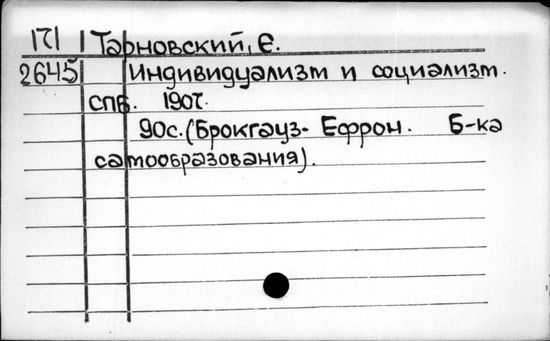 171 Тарновский, Е.
2645 Индивидуализм и социализм.
СПБ. 1907.
90с. (Брокгауз-Ефрон. Б-ка
самообразования).